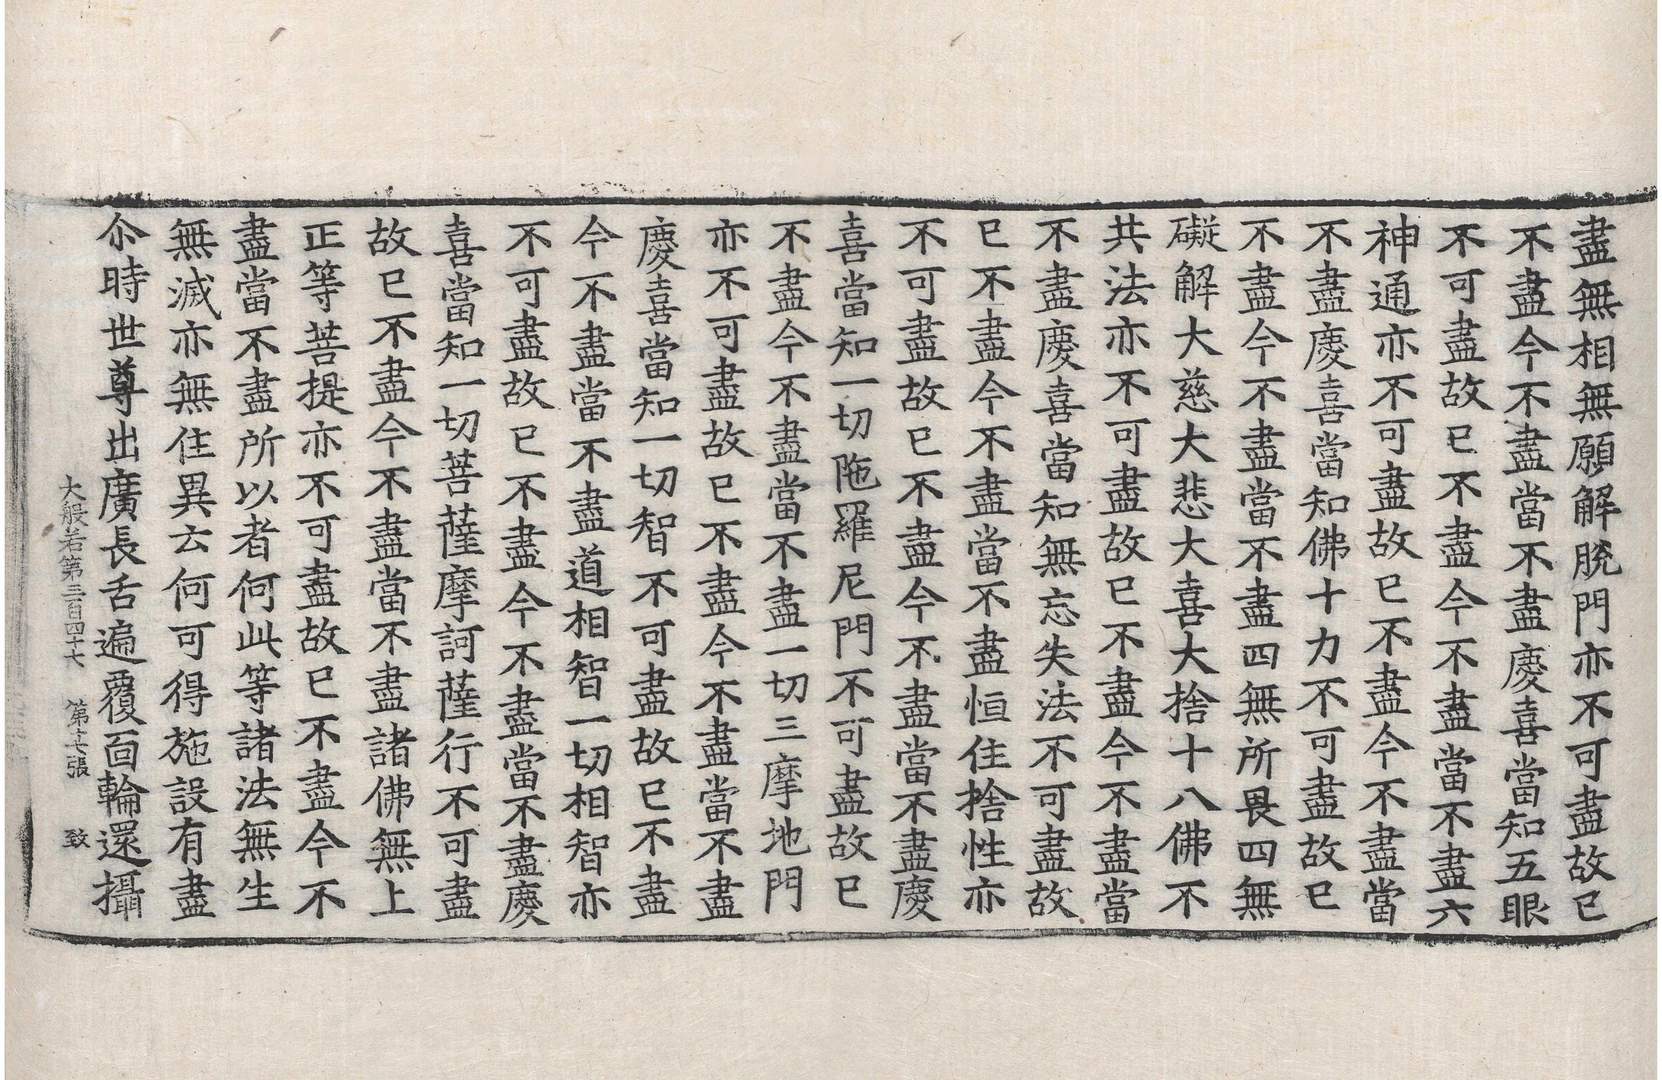 盡無相無願解脫門亦不可盡故已
不盡今不盡當不盡慶喜當知五眼
不可盡故已不盡今不盡當不盡六
神通亦不可盡故已不盡今不盡當
不盡慶喜當知佛十力不可盡故已
不盡今不盡當不盡四無所畏四無
礙解大慈大悲大喜大捨十八佛不
共法亦不可盡故已不盡今不盡當
不盡慶喜當知無忘失法不可盡故
已不盡今不盡當不盡恒住捨性亦
不可盡故已不盡今不盡當不盡慶
喜當知一切陁羅尼門不可盡故已
不盡今不盡當不盡一切三摩地門
亦不可盡故已不盡今不盡當不盡
慶喜當知一切智不可盡故已不盡
今不盡當不盡道相智一切相智亦
不可盡故已不盡今不盡當不盡慶
喜當知一切菩薩摩訶薩行不可盡
故已不盡今不盡當不盡諸佛無上
正等菩提亦不可盡故已不盡今不
盡當不盡所以者何此等諸法無生
無滅亦無住異云何可得施設有盡
尒時世尊出廣長舌遍覆面輪還攝
大般若第三百四十六 第十六張 致